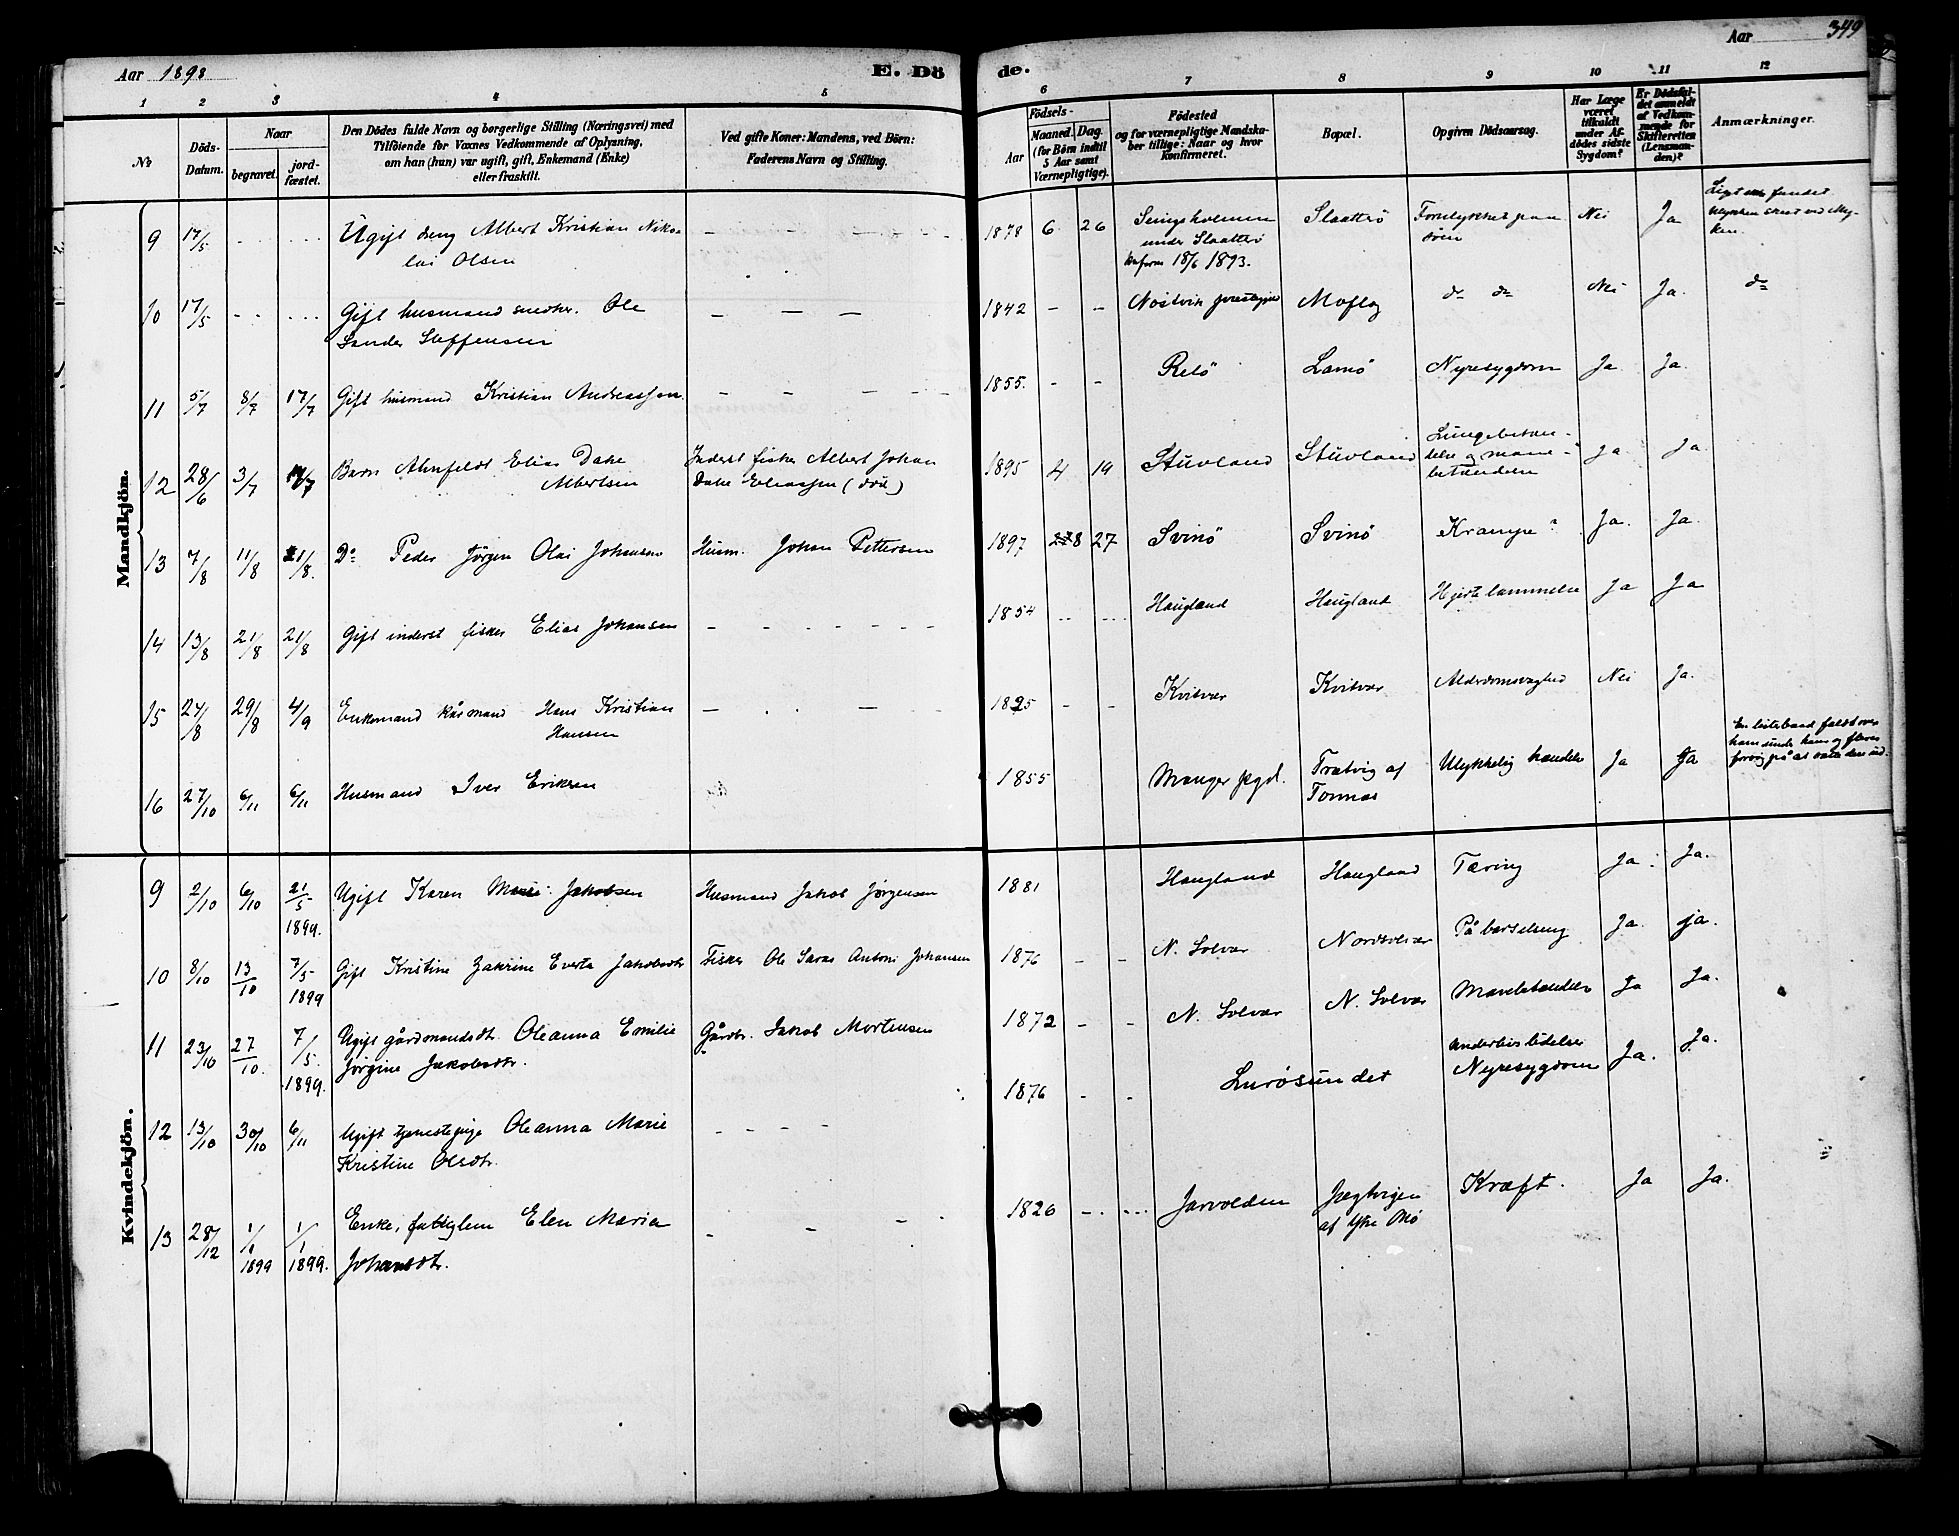 Aar 1898
E. Dö
de.
Aar
349
1 2 3 4 5 6 7 8 9 10 11 12
No
Döds-
Datum.
Naar
begravet.
jord-
fæstet.
Den Dödes fulde Navn og borgerlige Stilling (Næringsvei) med
Tilföiende for Voxnes Vedkommende af Oplysning,
om han (hun) var ugift, gift, Enkemand (Enke)
eller fraskilt.
Ved gifte Koner: Mandens, ved Börn:
Faderens Navn og Stilling.
Födsels-
Aar
Maaned. Dag.
(for Börn indtil
5 Aar samt
Værnepligtige).
Födested
og for værnepligtige Mandska-
ber tillige: Naar og hvor
konfirmeret.
Bopæl.
Opgiven Dödsaarsag.
Har Læge
været
tilkaldt
under Af-
dödes sidste
Sygdom?
Er Dödsfal-
det anmeldt
af Vedkom-
mende for
Skifteretten
(Lensman-
den)?
Anmærkninger.
Mandkjön.
9 17/5 Ugift dreng Albert Kristian Niko-
lai Olsen
1878 6 26 under Slaatterö
18/6 1893.
Slaatterö Forulykket paa
söen Nei Ja
10 17/5 Gift husmand Ole
Sander Steffensen
1842 - - Moflag do do Nei Ja. do
11 5/7 8/7 17/7 Gift husmand Kristian Andreassen
1855. - - Relö Lamö Nyresygdom Ja Ja.
12 28/6 3/7 17/7 Barn Ahnfeldt Elias Dahe
Albertsen
Inderst fisker Albert Johan
Dahe Eliassen (död)
1895 4 19 Stuvland Stuvland Lungebetæn-
delse og mave-
betændelse Ja Ja.
13 7/8 11/8 21/8. Do Peder Jörgen Olai Johansen Husm. Johan Pettersen
1897 8 27 Svinö Svinö Krampe? Ja. Ja.
14 13/8 21/8 21/8 Gift inderst fisker Elias Johansen
1854 Haugland Haugland Hjerte lammelse Ja Ja
15 24/8 29/8 4/9 Enkemand Kårmand Hans Kristian
Hansen
1825 - - Kvitvær Kvitvær Alderdomssvaghed Nei Ja.
16 27/10 6/11 6/11 Husmand Iver Eriksen
1855 Manger pgd. Trætvig af
Tonnes Ulykkelig hændelse Ja Ja
Kvindekjön.
9 2/10 6/10 21/5
1899.
Ugift Karen Marie Jakobsen Husmand Jakob Jörgensen
1881 Haugland Haugland Tæring Ja Ja.
10 8/10 13/10 7/5
1899
Gift Kristine Zakrine Everta Jakobsdtr Fisker Ole Saras Antoni Johansen
1876 - - N. Solvær Nordsolvær På barselseng Ja. ja.
11 23/10 27/10. 7/5.
1899.
Ugift gårdmandsdtr. Oleanna Emilie
Jörgine Jakobsdtr.
Gårdbr. Jakob Mortensen
1872 - - N. Solvær N. Solvær Mavebetændelse Ja Ja.
12 13/10 30/10 6/11 Ugift tjenestepige Oleanna Marie
Kristine Olsdtr.
1876 - - Luröesundet
Nyresygdom Ja. Ja.
13 28/12 1/1
1899
1/1
1899.
Enke, fattiglem Elen Maria
Johansdtr.
1820 Jarvolden Jægtvigen
af Ytre Mö Kræft. Ja Ja.